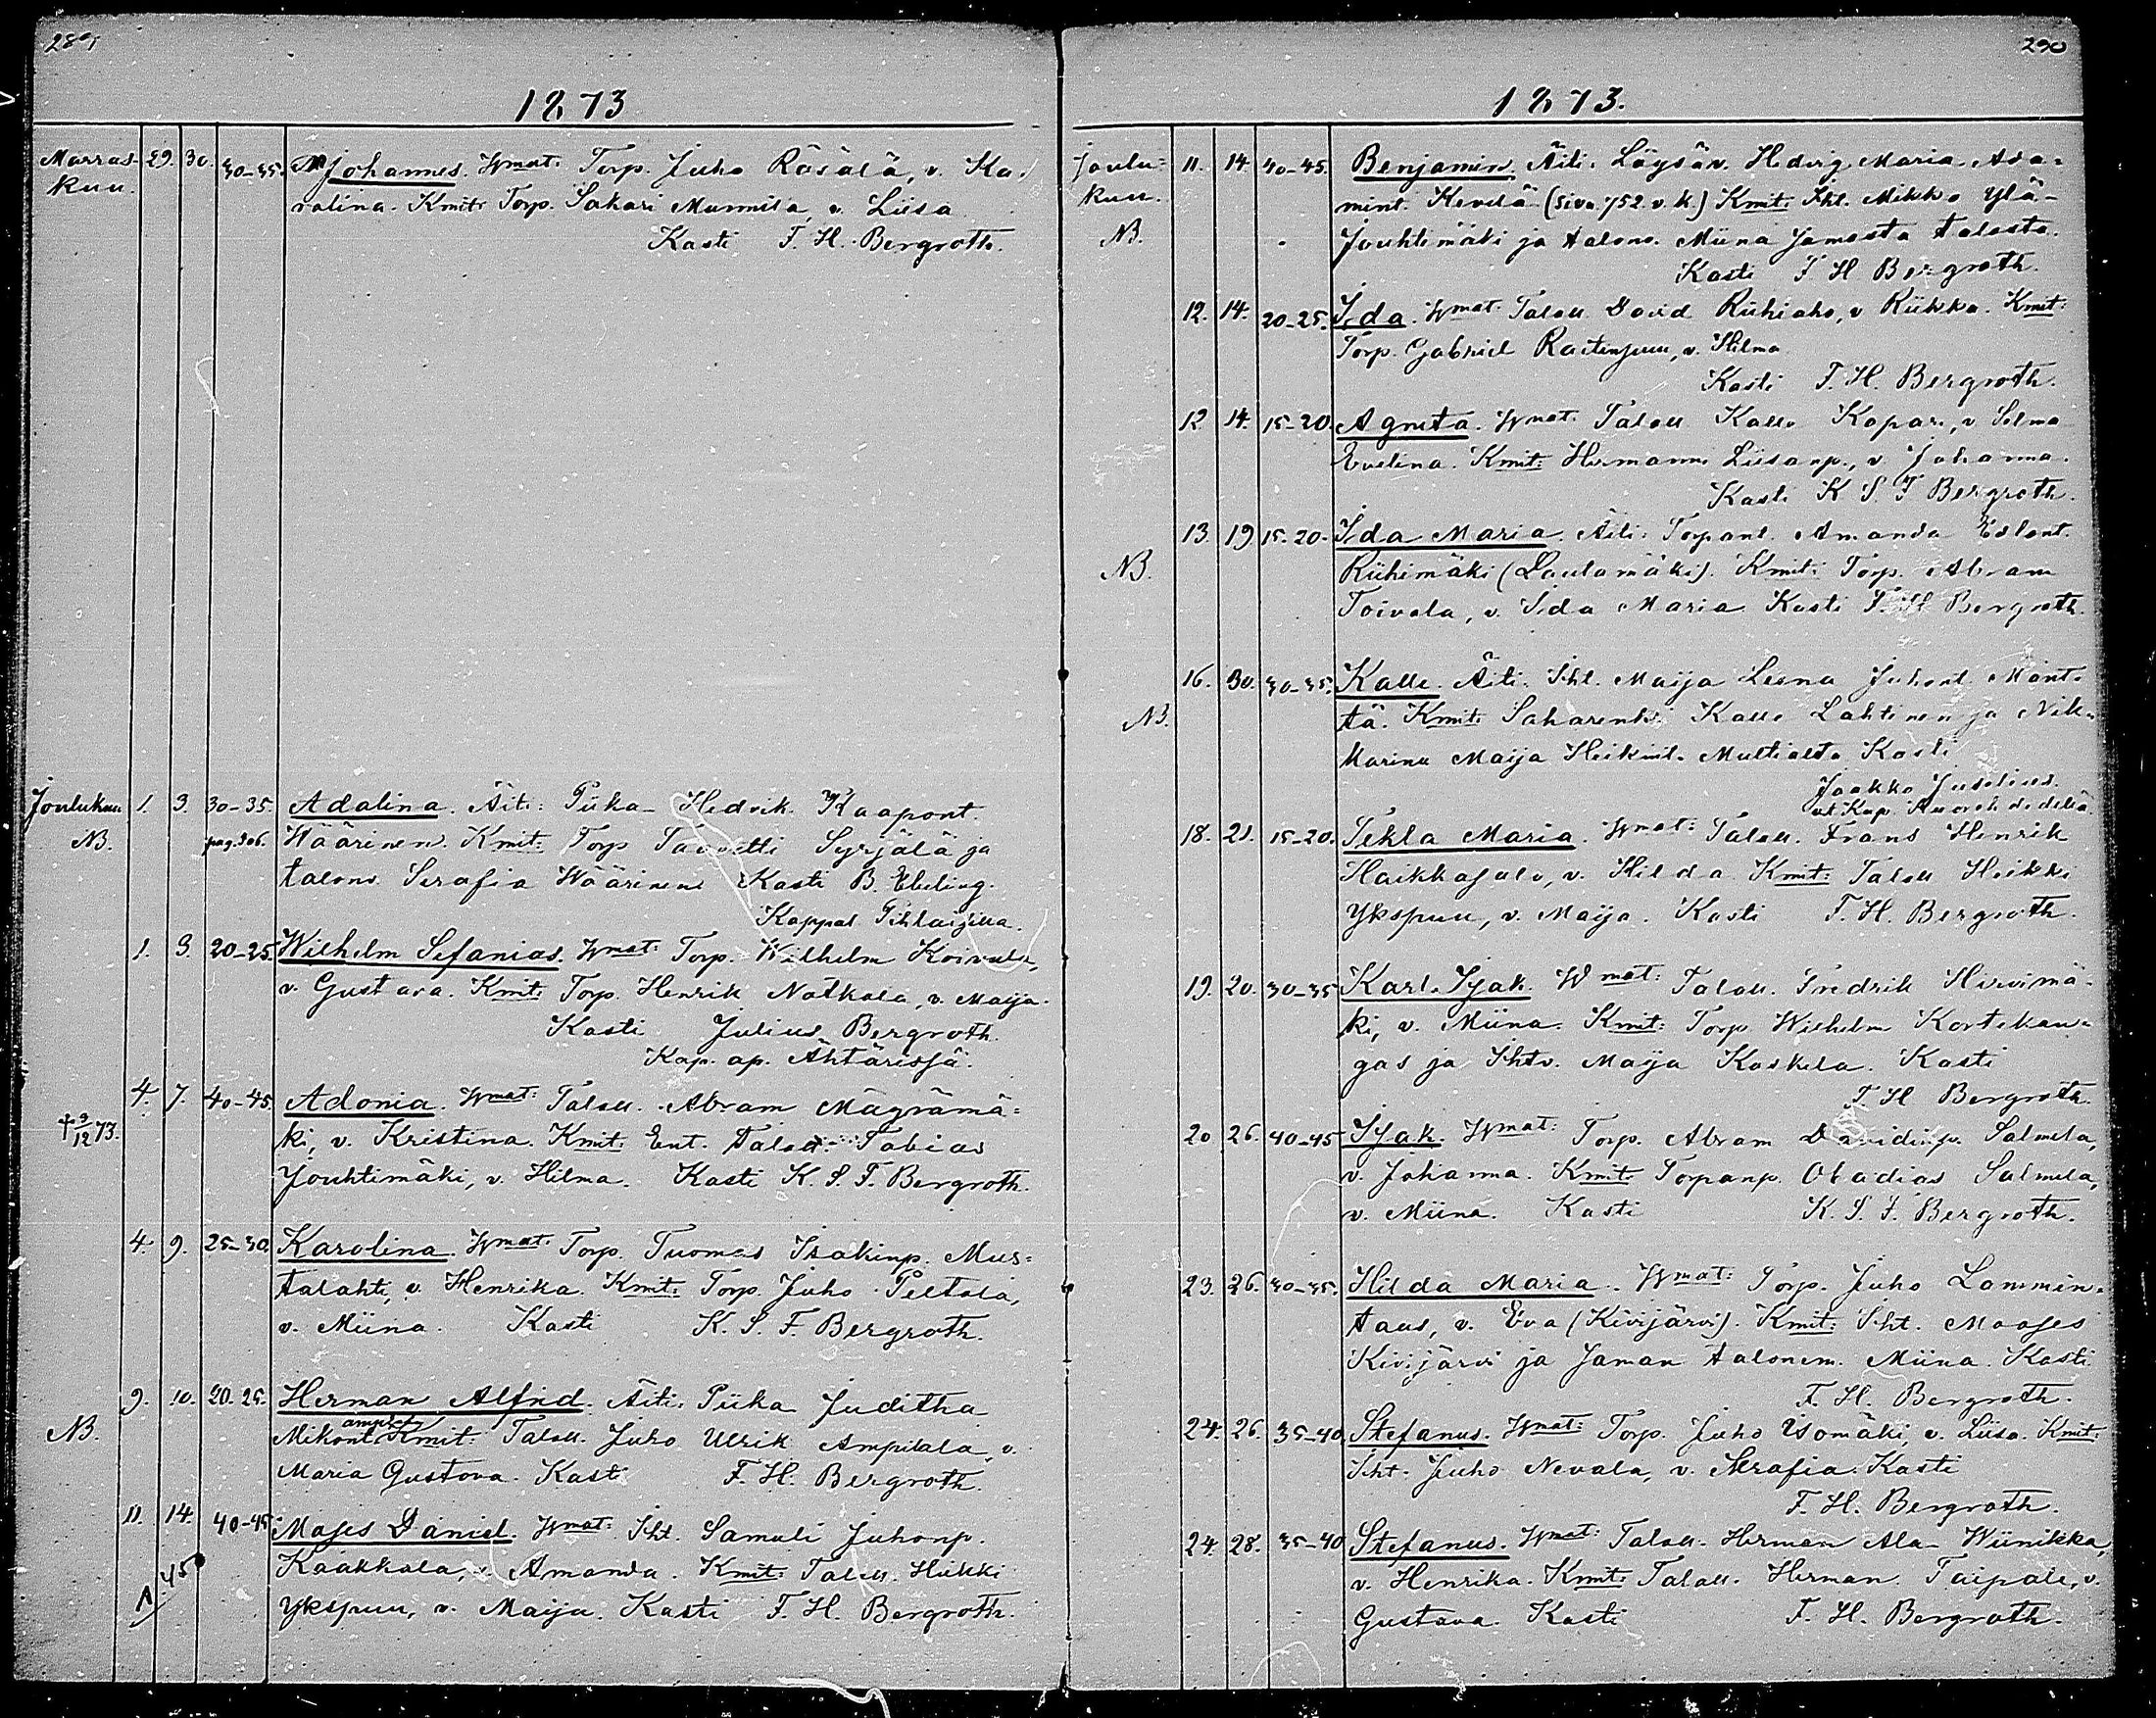 289
1873
Marras- 29. 30. 30-35. Johannes. Wmat: Torp. Juho Räsälä, v. Ka-
kuu. rolina. Kmit: Torp. Sakari Murmila, v. Liisa
Kasti F. H. Bergroth.
Joulukuu 1. 3. 30-35. Adalina. Äiti: Piika Hedvik Kaapont.
NB. pag. 306. Wäärinen. Kmit: Torp Taavetti Syrjälä ja
talonv. Serafia Wäärinen Kasti B. Ebeling.
Kappal. Pihlajalla.
1. 3. 20-25. Wilhelm Sefanias. Wmat: Torp. Wilhelm Koivula,
v. Gustava. Kmit: Torp. Henrik Notkola, v. Maija.
Kasti Julius Bergroth.
Kap. ap. Ähtärissä.
4. 7. 40-45 Adonia. Wmat: Taloll. Abram Mägrämä=
† 9/12 73. ki, v. Kristina. Kmit: Ent. Taloll. Tobias
Jouhtimäki, v. Hilma. Kasti K. S. F. Bergroth.
4. 9. 25-30. Karolina. Wmat: Torp. Tuomas Isakinp. Mus=
talahti, v. Henrika. Kmit: Torp. Juho Peltola,
v. Miina. Kasti K. S. F. Bergroth.
9. 10. 20-25. Herman Alfrid. Äiti: Piika Juditha
NB. Mikont. Kmit: Taloll. Juho Ulrik Ampilala, v.
Maria Gustava. Kasti F. H. Bergroth.
11. 14. 40-45 Moses Daniel. Wmat: Iht. Samuli Juhonp.
Kaakkola, v. Amanda. Kmit: Taloll. Heikki
Ykspuu, v. Maija. Kasti F. H. Bergroth.
290
1873.
Joulu= 11. 14. 40-45. Benjamin. Äiti: Löysän. Hedvig Maria Ada=
kuu. mint. Kevelä (siva 752 v. k.) Kmit: Iht. Mikko Ylä-
NB. Jouhtimäki ja talonv. Miina samasta talosta.
Kasti F. H Bergroth.
12. 14. 20-25. Ida. Wmat. Taloll David Riihiaho, v Riikka. Kmit:
Torp. Gabriel Raitinpuu, v. Hilma
Kasti F. H. Bergroth.
12 14. 15-20. Agneta. Wmat. Taloll Kalle Kopari, v Selma
Evelina. Kmit: Hermanni Liisanp., v Johanna.
Kasti K. S. F Bergroth.
13. 19 15-20. Ida Maria. Äiti: Torpant. Amanda Edlant.
NB. Riihimäki (Lautamäki). Kmit: Torp. Abram
Toivola, v. Ida Maria Kasti F. H Bergroth.
16. 30. 30-35. Kalle. Äiti. Iht. Maija Leena Juhont. Mänt-
NB. tä. Kmit: Kalle Lahtinen ja
Maija Heikint. Kasti
Jaakko Juselius.
18. 21. 15-20. Tekla Maria. Wmat: Taloll. Frans Henrik
Haikkasalo, v. Hilda Kmit: Taloll Heikki
Ykspuu, v. Maija. Kasti F. H. Bergroth.
19. 20. 30-35 Karl Isak. Wmat: Taloll. Fredrik Hirvimä-
ki, v. Miina. Kmit: Torp. Wilhelm Kortekan=
gas ja Ihtv. Maija Koskela. Kasti
F. H Bergroth.
20 26. 40-45 Isak. Wmat: Torp. Abram Davidinp. Salmela,
v. Johanna. Kmit: Torpanp. Obadias Salmela,
v. Miina. Kasti K. S. F. Bergroth.
23. 26. 30-35. Hilda Maria. Wmat: Torp. Juho Lammin-
taus, v. Eva (Kivijärvi). Kmit: Iht. Mooses
Kivijärvi ja saman talonem. Miina. Kasti
F. H. Bergroth.
24. 26. 35-40 Stefanus. Wmat: Torp. Juho Isomäki, v. Liisa. Kmit:
Iht. Juho Nevala, v. Serafia. Kasti
F. H. Bergroth.
24. 28. 35-40 Stefanus. Wmat: Taloll. Herman Ala-Wiinikka,
v. Henrika. Kmit: Taloll. Herman Taipale, v.
Gustava. Kasti F. H. Bergroth.